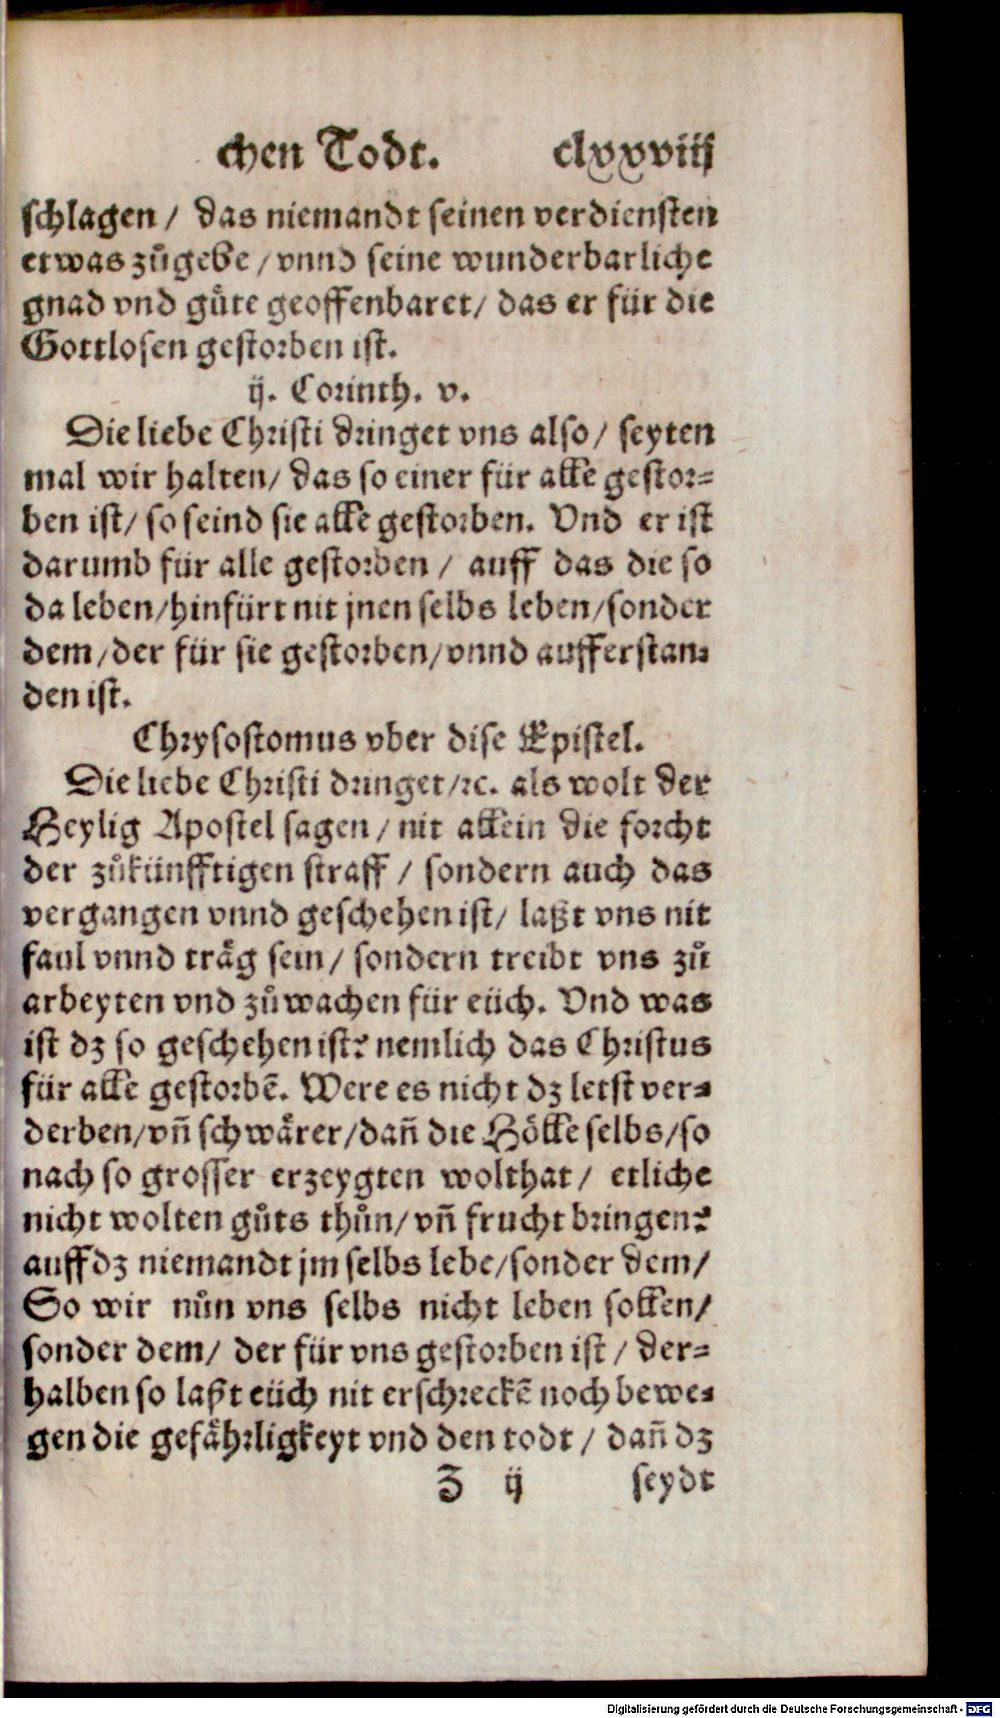 chen Todt. clxxviij
schlagen / das niemandt seinen verdiensten
etwas zuͦgebe / vnnd seine wunderbarliche
gnad vnd guͤte geoffenbaret / das er für die
Gottlosen gestorben ist.
ij. Corinth. v.
Die liebe Christi dringet vns also / seyten
mal wir halten / das so einer für alle gestor=
ben ist / so seind sie alle gestorben. Vnd er ist
darumb für alle gestorben / auff das die so
da leben / hinfürt nit jnen selbs leben / sonder
dem / der für sie gestorben / vnnd aufferstan=
den ist.
Chrysostomus vber dise Epistel.
Die liebe Christi dringet / ꝛc. als wolt der
Heylig Apostel sagen / nit allein die forcht
der zuͦkünfftigen straff / sondern auch das
vergangen vnnd geschehen ist / laßt vns nit
faul vnnd traͤg sein / sondern treibt vns zuͦ
arbeyten vnd zuͦwachen für eüch. Vnd was
ist dz so geschehen ist? nemlich das Christus
für alle gestorbē. Were es nicht dz letst ver=
derben / vñ schwaͤrer / dañ die Hoͤlle selbs / so
nach so grosser erzeygten wolthat / etliche
nicht wolten guͦts thuͦn / vñ frucht bringen?
auff dz niemandt jm selbs lebe / sonder dem /
So wir nuͦn vns selbs nicht leben sollen /
sonder dem / der für vns gestorben ist / der=
halben so laßt eüch nit erschreckē noch bewe=
gen die gefaͤhrligkeyt vnd den todt / dañ dz
Z ij seydt
Digitalisierung gefördert durch die Deutsche Forschungsgemeinschaft - DFG